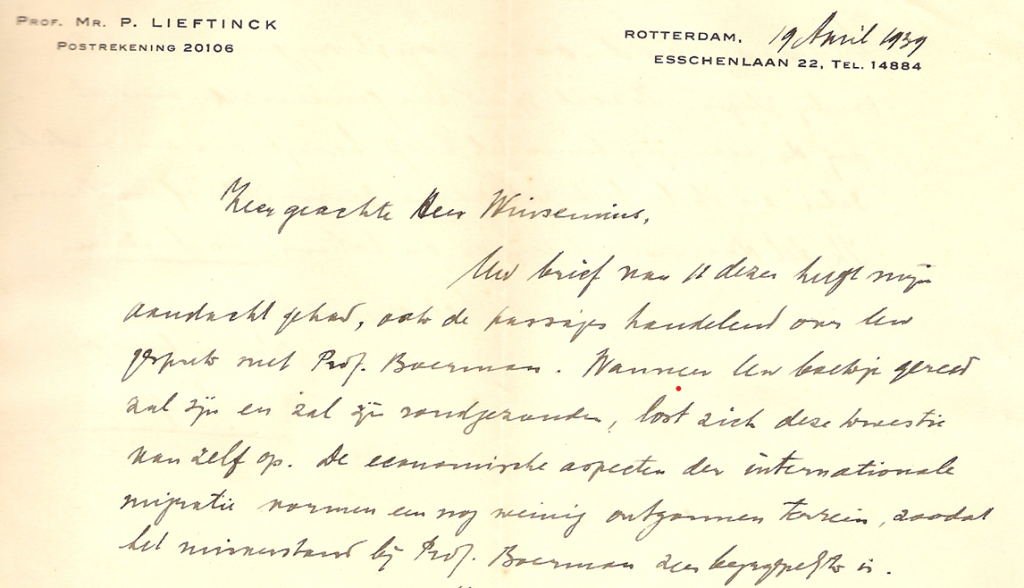 PROF. MR. P. LIEFTINCK
POSTREKENING 20106
ROTTERDAM, 19 April 1939
ESSCHENLAAN 22, TEL. 14884
Zeer geachte Heer Winsemius,
Uw brief van 11 dezer heeft mijn
aandacht gehad, ook de passages handelend over Uw
gesprek met Prof. Boerman. Wanneer Uw boekje gereed
zal zijn en zal zijn rondgezonden, lost zich deze kwestie
van zelf op. De economische aspecten der internationale
migratie vormen een nog weinig ontgonnen terrein, zoodat
het misverstand bij Prof. Boerman zeer begrijpelijk is.